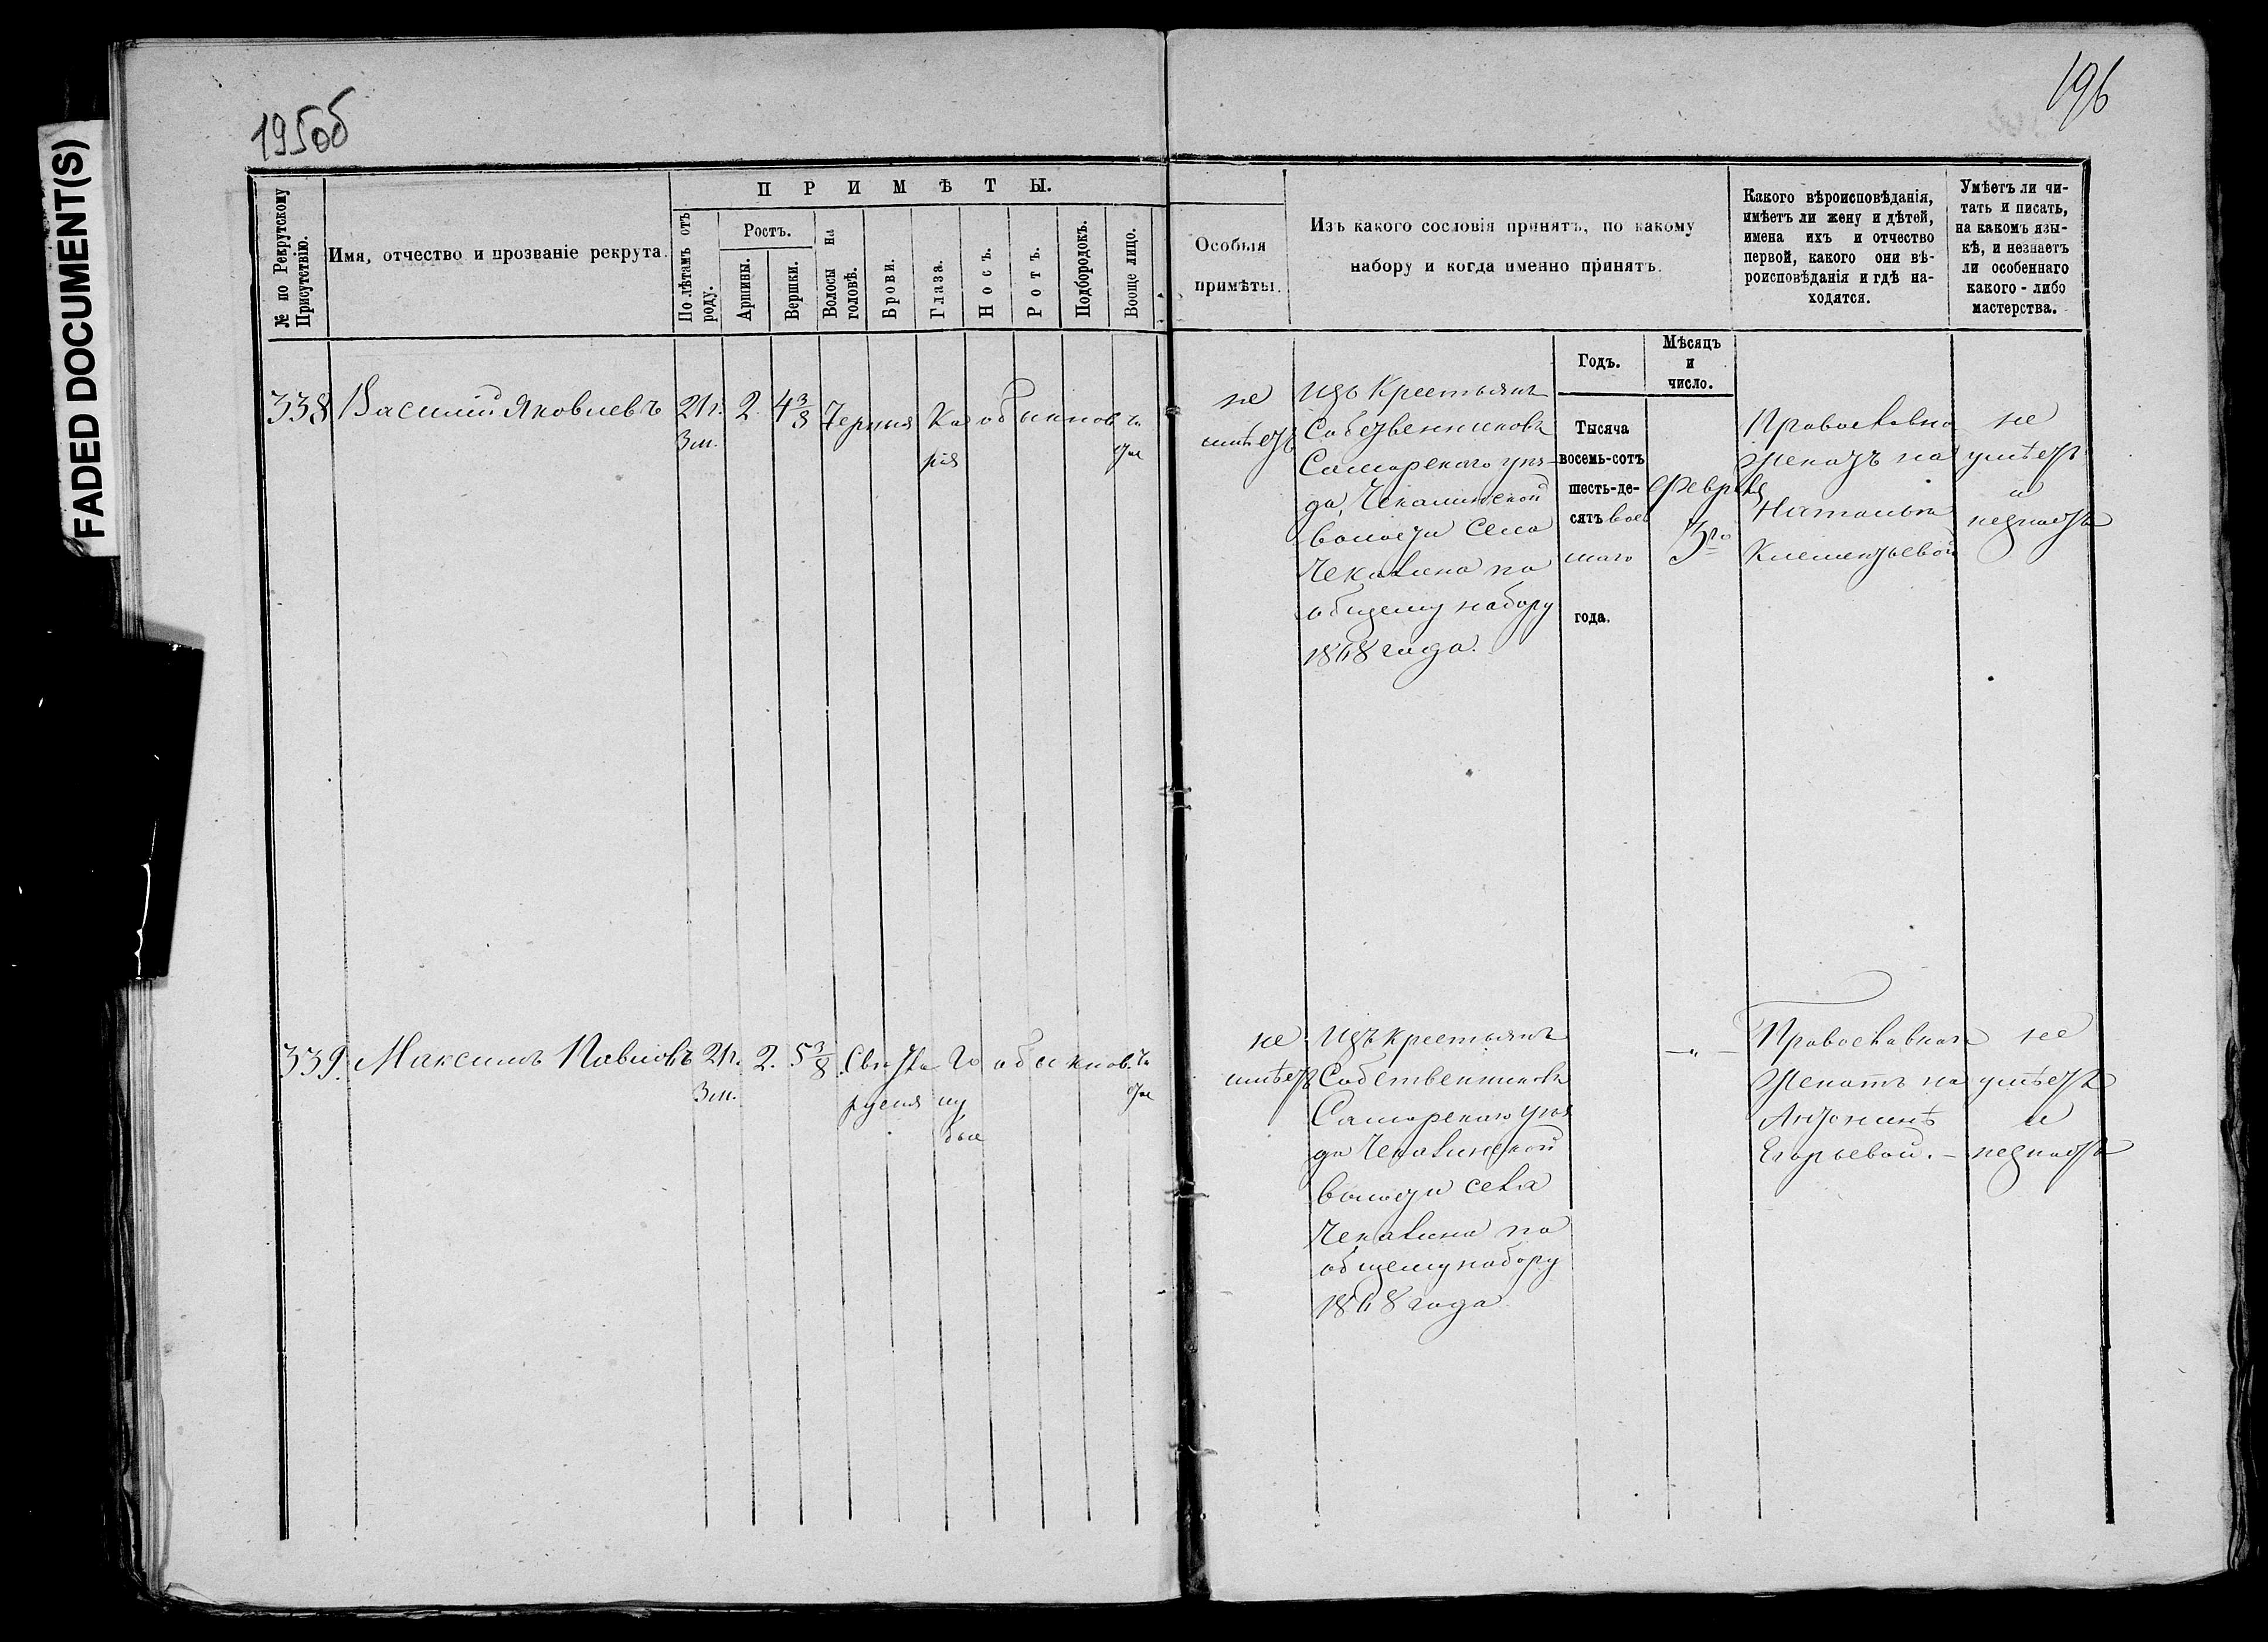 FADED DOCUMENT(S)
195об
196
№ по Рекрутскому Присутствію.
Имя, отчество и прозваніе рекрута.
ПРИМѢТЫ.
По лѣтамъ отъ роду.
Ростъ.
Аршины.
Вершки.
Волосы на головѣ.
Брови.
Глаза.
Носъ.
Ротъ.
Подбородокъ.
Вооще лицо.
Особыя
примѣты.
Изъ какого сословія принятъ, по какому
набору и когда именно принятъ.
Какого вѣроисповѣданія,
имѣетъ ли жену и дѣтей,
имена ихъ и отчество
первой, какого они вѣ-
роисповѣданія и гдѣ на-
ходятся.
Умѣетъ ли чи-
тать и писать,
на какомъ язы-
кѣ, и незнаетъ
ли особеннаго
какого-либо
мастерства.
Годъ.
Мѣсяцъ
и
число.
338 Василий Яковлевъ 21г. 2. 4 3/8 Черныя Ка обыкнов ч
3м. рія
не
имѣетъ
изъ Крестьянъ
Собственниковъ
Самарскаго уѣз-
да, Чекалинской
волости Села
Чекалина по
общему набору
1868 года.
Тысяча
восемь-сотъ
шесть-де-
сятъ вось
маго
года.
Февраля
3го
Православна
женатъ на
Наталье
Клементьевой
не
умѣетъ
и
незнаетъ
339. Максимъ Павловъ 21г. 2. 5 3/8 Свѣтло Го обыкнов. ч
3м. русыя лу
бые
не
имѣетъ
Изъ крестьянъ
Собственниковъ
Самарскаго уѣз
да Чекалинской
волости села
Чекалина по
общему набору
1868 года.
— „ —
Православнаго
женатъ на
Антонинѣ
Егорьевой. —
не
умѣетъ
и
незнаетъ